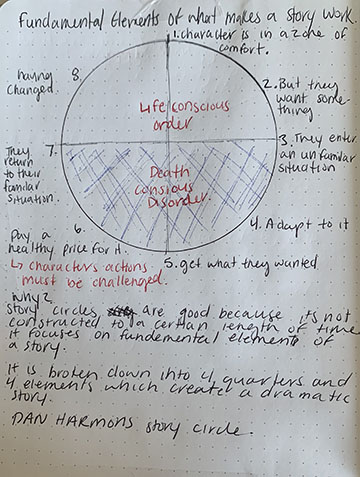 Fundamental Elements of what makes a story work.
1. character is in a zone of
comfort.
2. But they
want some-
thing
3. They enter
an unfamilar
situation
4. Adapt to it
5. get what they wanted
6.
Pay a
healthy price for it.
↳ characters actions
must be challenged.
7.
They
return
to their
familar
situation.
8.
having
changed.
Life conscious
order
Death
consious
Disorder.
Why?
Story circles are good because its not
constructed to a certian length of time
it focuses on fundemental elements of
a story.
It is broken down into 4 quarters and
4 elements which create a dramatic
story.
DAN HARMONS story circle.